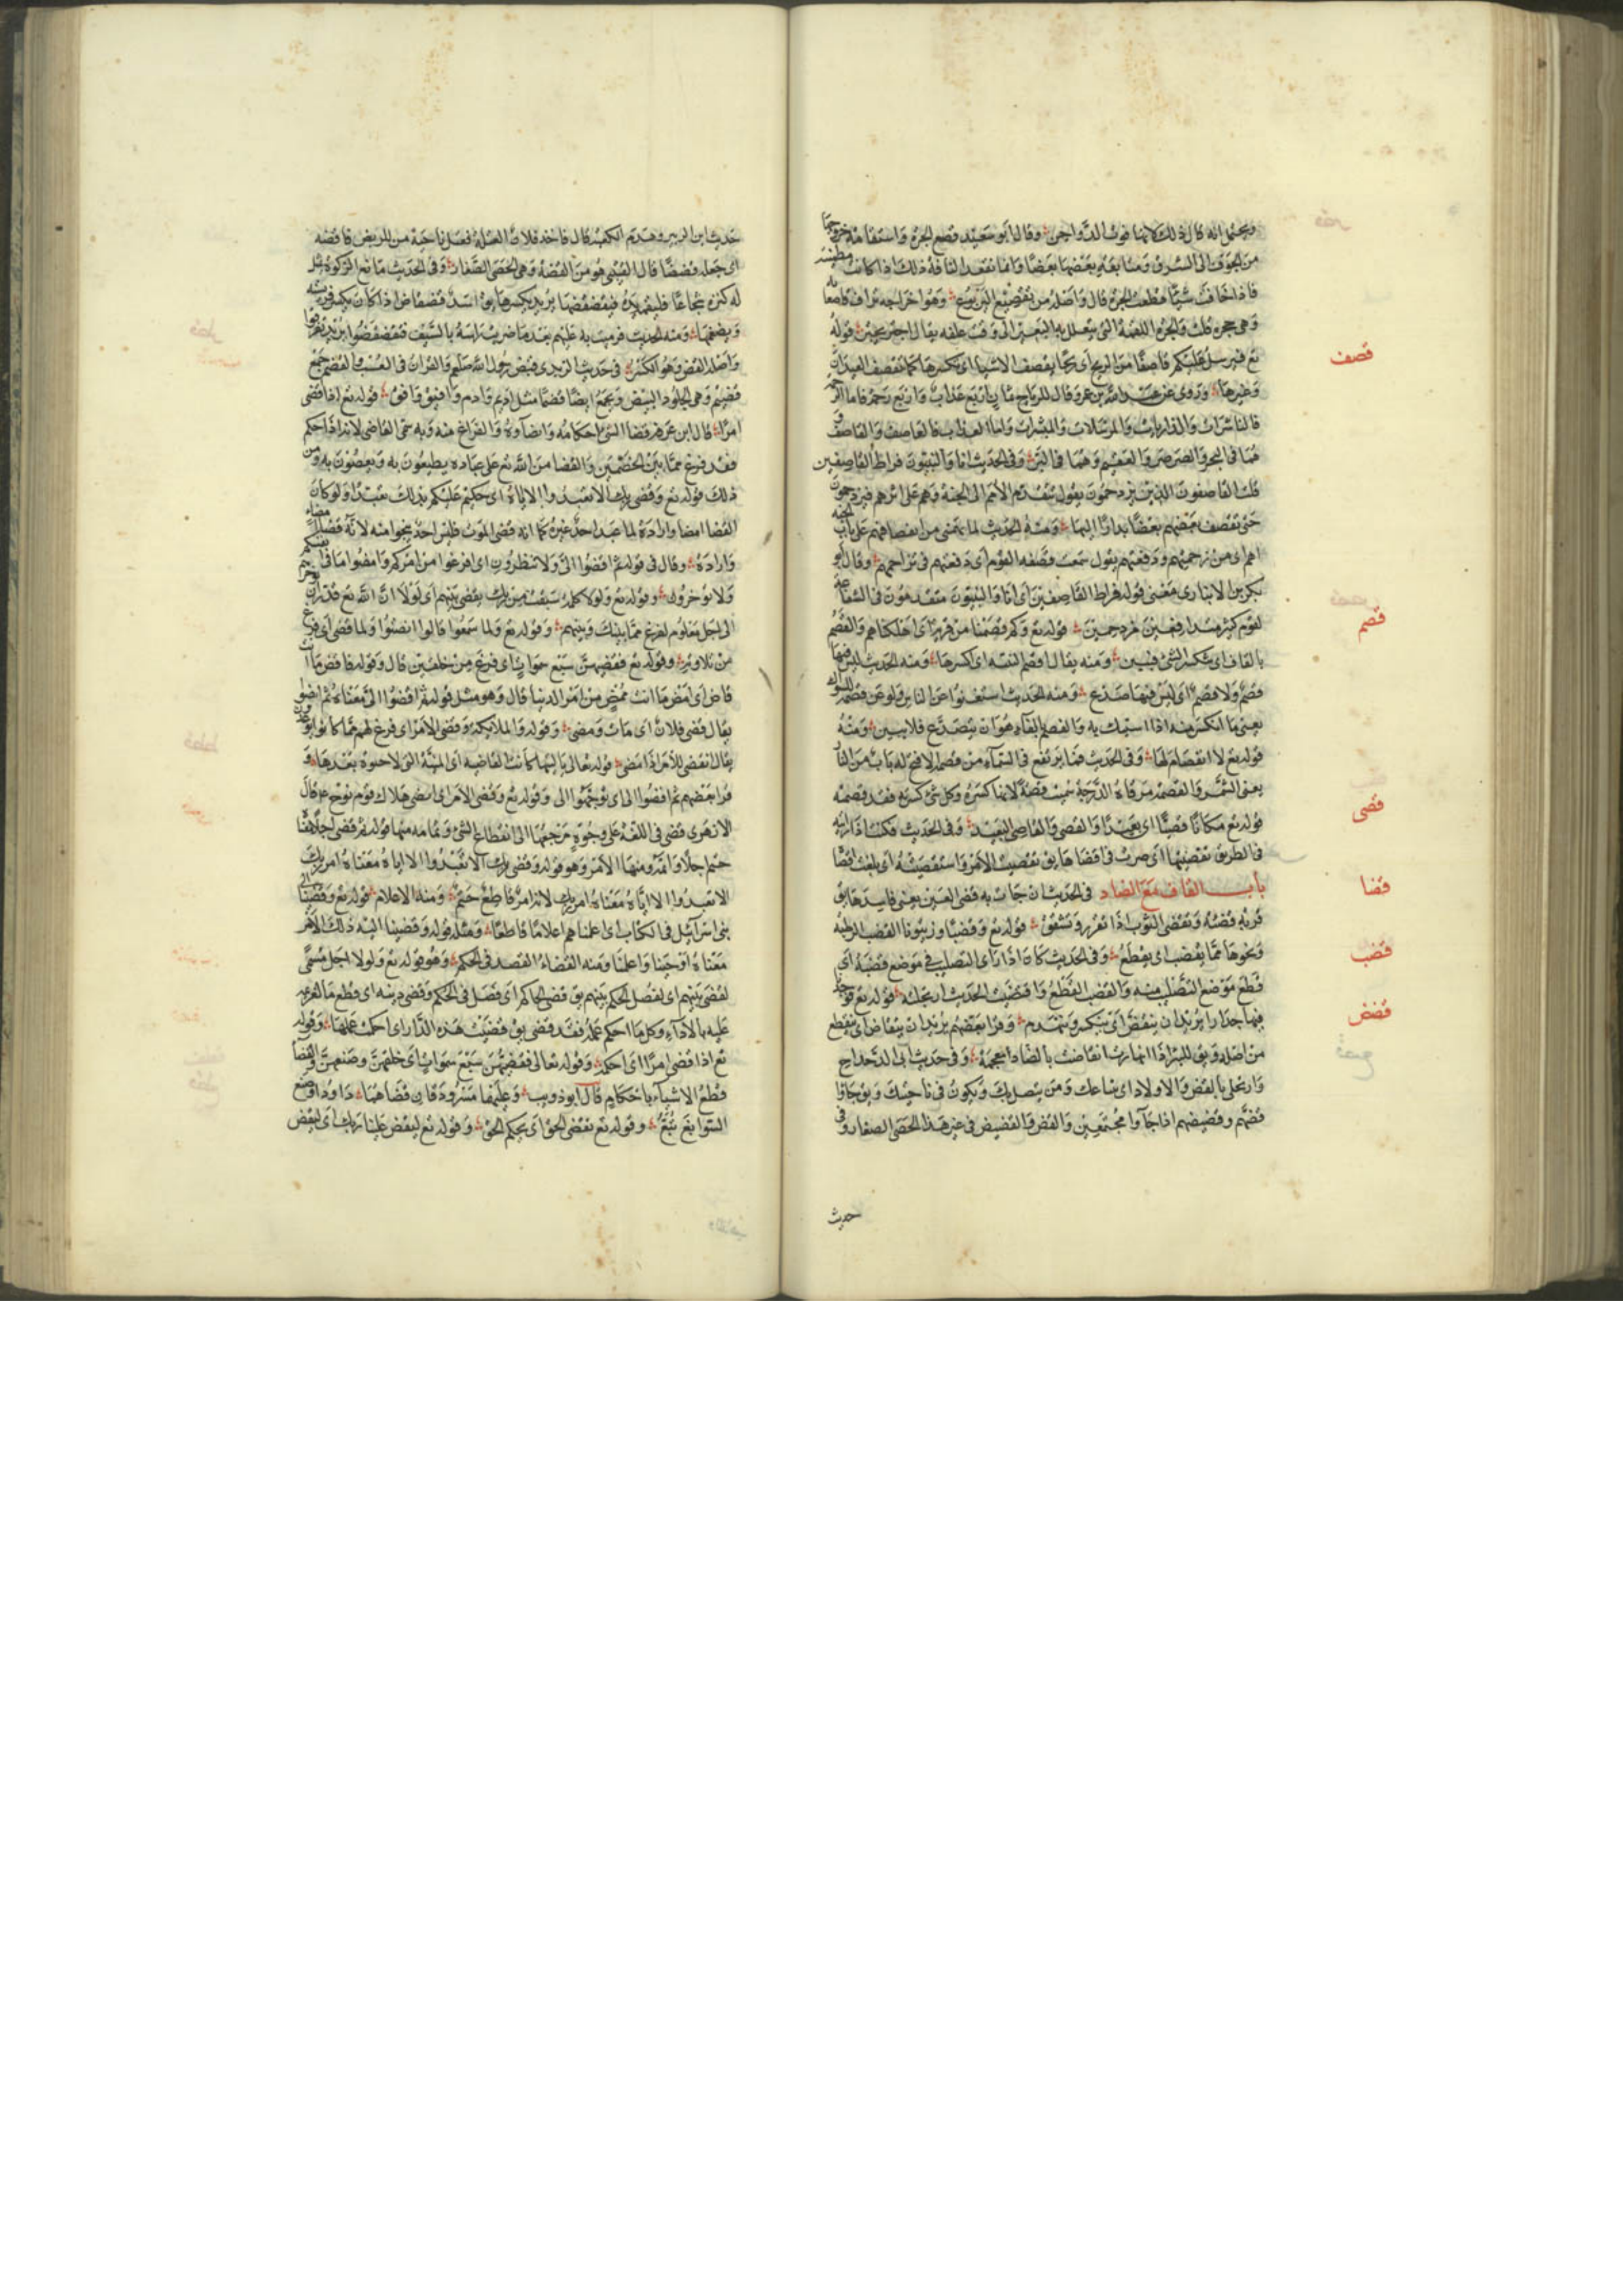 ويحتمل انه قال ذلك لانها فوت الدواجن وقال ابو سعيد قصع الجرة واستقامة خروجها
من الجوف الى الشدق ومتابعة بعضها بعضا وانما تفعل الناقة ذلك اذا كانت مطمئنة
فاذا خافت شيئا قطعت الجرة قال واصله من تقصيع اليربوع وهو اخراجه تراب قاصعائه
قوله
تع فيرسل عليكم قاصفا من الريح اى ريحا يقصف الاشياء اى تكسرها كما تقصف العيدان
قصف
وغيرها وروى عن عبد الله بن عمرو قال الرياح ثمان اربع عذاب واربع رحمة فاما الرحمة
فالناشرات والذاريات والمرسلات والمبشرات واما العذاب فالعاصف والقاصف
هما فى البحر والصرصر والعقيم وهما فى البر وفى الحديث انا والنبيون فراط القاصفين
قلت القاصفون الذين يزدحمون يقول تتقدم الامم الى الجنة وهم على اثرهم فيزدحمون
حتى يقصف بعضهم بعضا بدارا اليها ومنه الحديث لما يهمنى من انقصافهم على باب الجنة
وقال ابو
بكر بن الانبارى معنى قوله فراط القاصفين اى انا والنبيون متقدمون فى الشفاعة
لقوم كثير متدافعين مزدحمين قوله تع وكم قصمنا من قرية اى اهلكناهم والقصم
قصم
بالقاف ان ينكسر الشئ فيبين ومنه يقال قصم الله اى كسرها ومنه الحديث ليس فيها
قصم ولا فصم اى ليس فيها صدع ومنه الحديث استغنوا عن الناس ولو عن قصمة السواك
يعنى ما انكسر منه اذا استيك به والفصم بالفاء هو ان يتصدع فلا يبين ومنه
قوله تع لا انفصام لها وفى الحديث فما يرتفع فى السماء من قصمة الا فتح له باب من النار
يعنى الشمس والقصمة مرقاة الدرجة سميت قصمة لانها كسرة وكل شئ كسرته فقد قصمته
قوله تع مكانا قصيا اى بعيدا والقصى والقاصى البعيد وفى الحديث فكنت اذا رايته
قصى
فى الطريق تقصيتها اى صرت فى اقصاها يق تقصيت الامر واستقصيته اى بلغت اقصاه
باب القاف مع الضاد فى الحديث ان جاءت به قضى العين يعنى فاسدها يق
قضا
قربة قضئة وتقضى الثوب اذا تفزر وتشقق قوله تع وقضبا وزيتونا القضب الرطبة
ونحوها مما يقضب اى يقطع وفى الحديث كان اذا راى التصليب فى موضع قضبه اى
قضب
قطع موضع التصليب منه والقضب القطع واقتضبت الحديث ارتجلته قوله تع فوجدا
فيها جدارا يريد ان ينقض اى ينكسر وينهدم وقرا بعضهم يريد ان ينقاض اى ينقطع
قضض
من اصله ويق للبئر اذا انهارت انقاضت بالضاد معجمة وفى حديث ابى الدحداح
وارتحلى بالقض والاولاد اى بتباعك ومن يتصل بك ويكون فى ناحيتك ويق جاؤا
قضهم وقضيضهم اذا جاءوا مجتمعين والقض والقضيض فى غير هذا الحصى الصغار وفى
حديث
حديث ابن الزبير وهدم الكعبة قال فاخذ فلان العتلة فعتل ناحية من الربض فاقضه
اى جعله قضضا قال القتبى هو من القضة وهى الحصى الصغار وفى الحديث مانع الزكوة يمثل
له كنزه شجاعا فيلقمه يده فيقضقضها يريد يكسرها يق اسد قضقاض اذا كان يكسر فريسته
ويقضقضها ومنه الحديث فرميت به عليهم بعد ما ضربت راسه بالسيف فتقضقضوا اى تفرقوا
واصله القض وهو الكسر فى حديث الزهرى قبض رسول الله صلعم والقران فى العسب والقضم جمع
قضيم وهى الجلود البيض ويجمع ايضا قضما مثل اديم وادم وافيق وافق قوله تع اذا قضى
امرا قال ابن عرفة قضاء الشئ احكامه وامضاؤه والفراغ منه وبه سمى القاضى لانه اذا حكم
فقد فرغ مما بين الخصمين والقضا من الله تع على عباده يطيعون به ويعصون به ومن
ذلك قوله تع وقضى ربك الا تعبدوا الا اياه اى حكم عليكم بذلك تعبدا ولو كان
القضا امضا وارادة لما عبد احد غيره كما انه قضى الموت فليس احد ينجوا منه لانه قضاء
وارادة وقال فى قوله تع اقضوا الى ولا تنظرون اى افرغوا من امركم وامضوا ما فى انفسكم
ولا تؤخرون وقوله تع ولولا كلمة سبقت من ربك لقضى بينهم اى لولا ان الله تع قدر
الى اجل معلوم لفرغ مما بينك وبينهم وقوله تع ولما سمعوا قالوا انصتوا ولما قضى اى فرغ
من تلاوته وقوله تع فقضيهن سبع سموات اى فرغ من خلقهن قال وقوله فاقض ما انت
قاض اى امض ما انت ممض من امر الدنيا قال وهو مثل قوله ثم اقضوا الى معناه ثم امضوا
يقال قضى فلان اى مات ومضى وقوله والملائكة وقضى الامر اى فرغ لهم مما كانوا يوعدون
قوله تعالى ياليتها كانت القاضية اى الميتة التى لا حيوة بعدها و
قرا بعضهم ثم افضوا الى اى توجهوا الى وقوله تع وقضى الامر اى امضى هلاك قوم نوح عم قال
الازهرى قضى فى اللغة على وجوه مرجعها الى انقطاع الشئ وتمامه منها قوله ثم قضى اجلا معناه
حتم اجلا واتمه ومنها الامر وهو قوله وقضى ربك الا تعبدوا الا اياه معناه امر ربك
الا تعبدوا الا اياه معناه امر ربك لانه امر قاطع حتم ومنه الاعلام قوله تع وقضينا الى
بنى اسرائيل فى الكتاب اى اعلمناهم اعلاما قاطعا ومثله قوله وقضينا اليه ذلك الامر
معناه اوحينا واعلمنا ومنه القضاء الفصل فى الحكم وهو قوله تع ولولا اجل مسمى
لقضى بينهم اى لفصل الحكم بينهم يق قضى الحاكم اى فصل فى الحكم وقضى دينه اى قطع ما لغريمه
عليه بالاداء وكل ما احكم عمله فقد قضى يق قضيت هذه الدار اى احكمت عملها وقوله
تع اذا قضى امرا اى احكمه وقوله تعالى فقضيهن سبع سموات اى خلقهن وصنعهن والقضا
قطع الاشياء باحكام قال ابو ذويب وعليهما مسرودتان قضاهما داود او صنع
السوابغ تبع وقوله تع يقضى الحق اى يحكم الحق وقوله تع ليقض علينا ربك اى ليقض